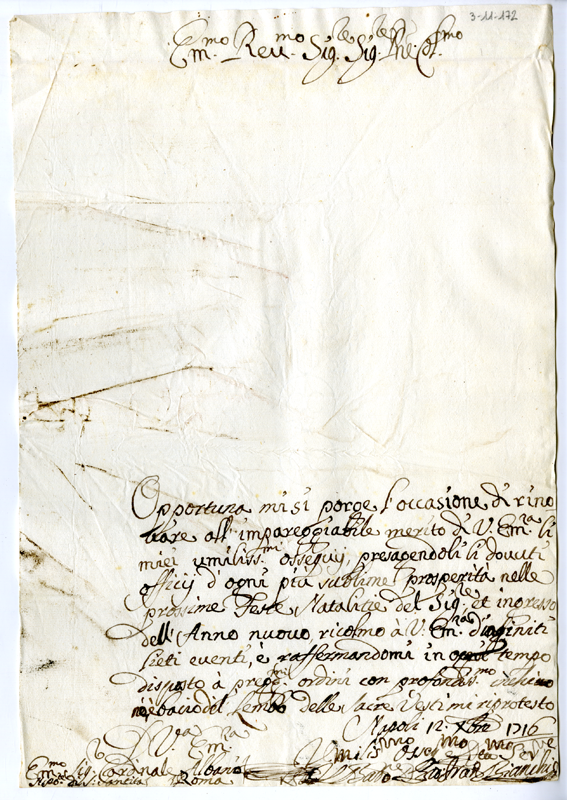 3-11-172
E.mo Reu.mo Sig.re Sig.re Pne Col.mo
Opportuna mi si porge l'occasione di rino
uare all'impareggiabile merito di V. Em.za li
miei umiliss.mi ossequij, presagendoli li douuti
officij d'ogni più sublime prosperità nelle
prossime Feste Natalitie del Sig.re et ingresso
dell'Anno nuouo, ricolmo à V. Em.za d'infiniti
lieti euenti, è raffermandomi in ogni tempo
disposto à pregg.mi ordini con profondiss.mo
bacio del Lembo delle sacre Vesti mi riprotesto
Napoli 12. Xbre 1716
D. V.ra Em.za
Em.mo Sig. Cardinale Albani
Roma